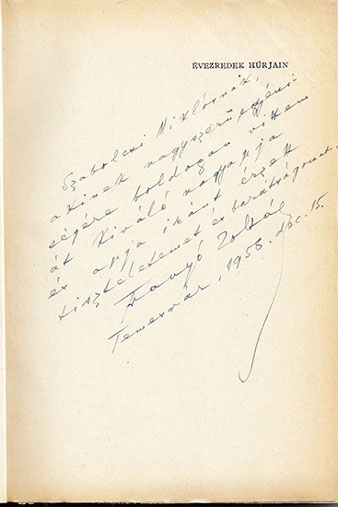 ÉVEZREDEK HÚRJAIN
Szabolcsi Miklósnak,
akinek nagyszerű egyéni-
ségére boldogan viszem
át kiváló nagyapja
és apja iránt érzett
tiszteletemet és barátságomat.
Franyó Zoltán
Temesvár, 1958. dec. 15.